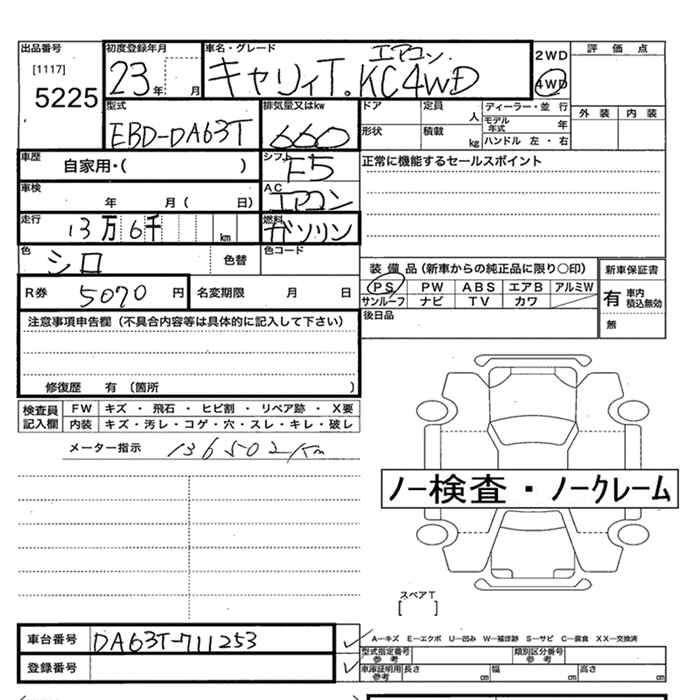 出品番号 初度登録年月 車名・グレード エアコン 2WD 評価点
[1117] 5225 23年 月 キャリィT. KC4WD 4WD
外装 内装
型式 排気量又はkw ドア 定員 人 ディーラー・並行
EBD-DA63T 660 形状 積載 kg モデル年式 年
ハンドル 左・右
車歴 自家用・( ) シフト F5 正常に機能するセールスポイント
車検 年 月( 日) AC エアコン
走行 13万6千 km 燃料 ガソリン
色 シロ 色替 色コード
装備品(新車からの純正品に限り○印) 新車保証書
R券 5070円 名変期限 月 日 PS PW ABS エアB アルミW 有 車内積込無効
サンルーフ ナビ TV カワ
注意事項申告欄(不具合内容等は具体的に記入して下さい) 後日品 無
修復歴 有(箇所 )
検査員記入欄 FW キズ・飛石・ヒビ割・リペア跡・X要
内装 キズ・汚レ・コゲ・穴・スレ・キレ・破レ
メーター指示 136502km
ノー検査・ノークレーム
スペアT
[ ]
車台番号 DA63T-711253 A―キズ E―エクボ U―凹み W―補修跡 S―サビ C―腐食 XX―交換済
型式指定番号 参考 類別区分番号 参考
登録番号 車庫証明用参考 長さ cm 幅 cm 高さ cm